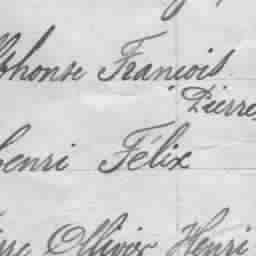 Alphonse François
Pierre
Henri Félix
Ollivier Henri